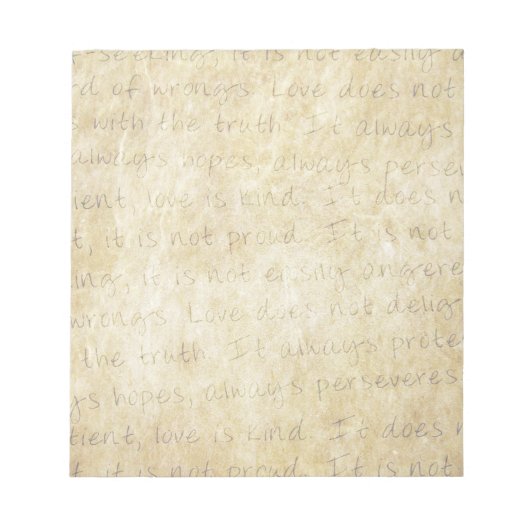 f-seeking, it is not easily a
rd of wrongs. Love does not
s with the truth. It always
always hopes, always persev
ient, love is kind. It does n
t, it is not proud. It is not
ing, it is not easily angere
wrongs. Love does not delig
the truth. It always prote
ys hopes, always perseveres.
tient, love is kind. It does n
t, it is not proud. It is not